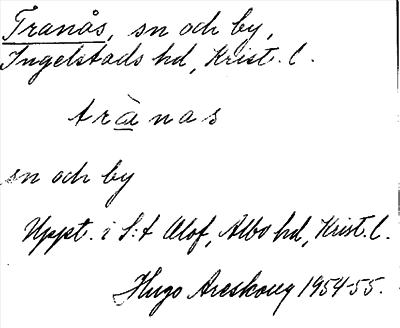 Tranås, sn och by,
Ingelstads hd, Krist. l.
tränas
sn och by
Uppt. i S:t Olof, Albo hd, Krist. l.
Hugo Areskoug 1954-55.